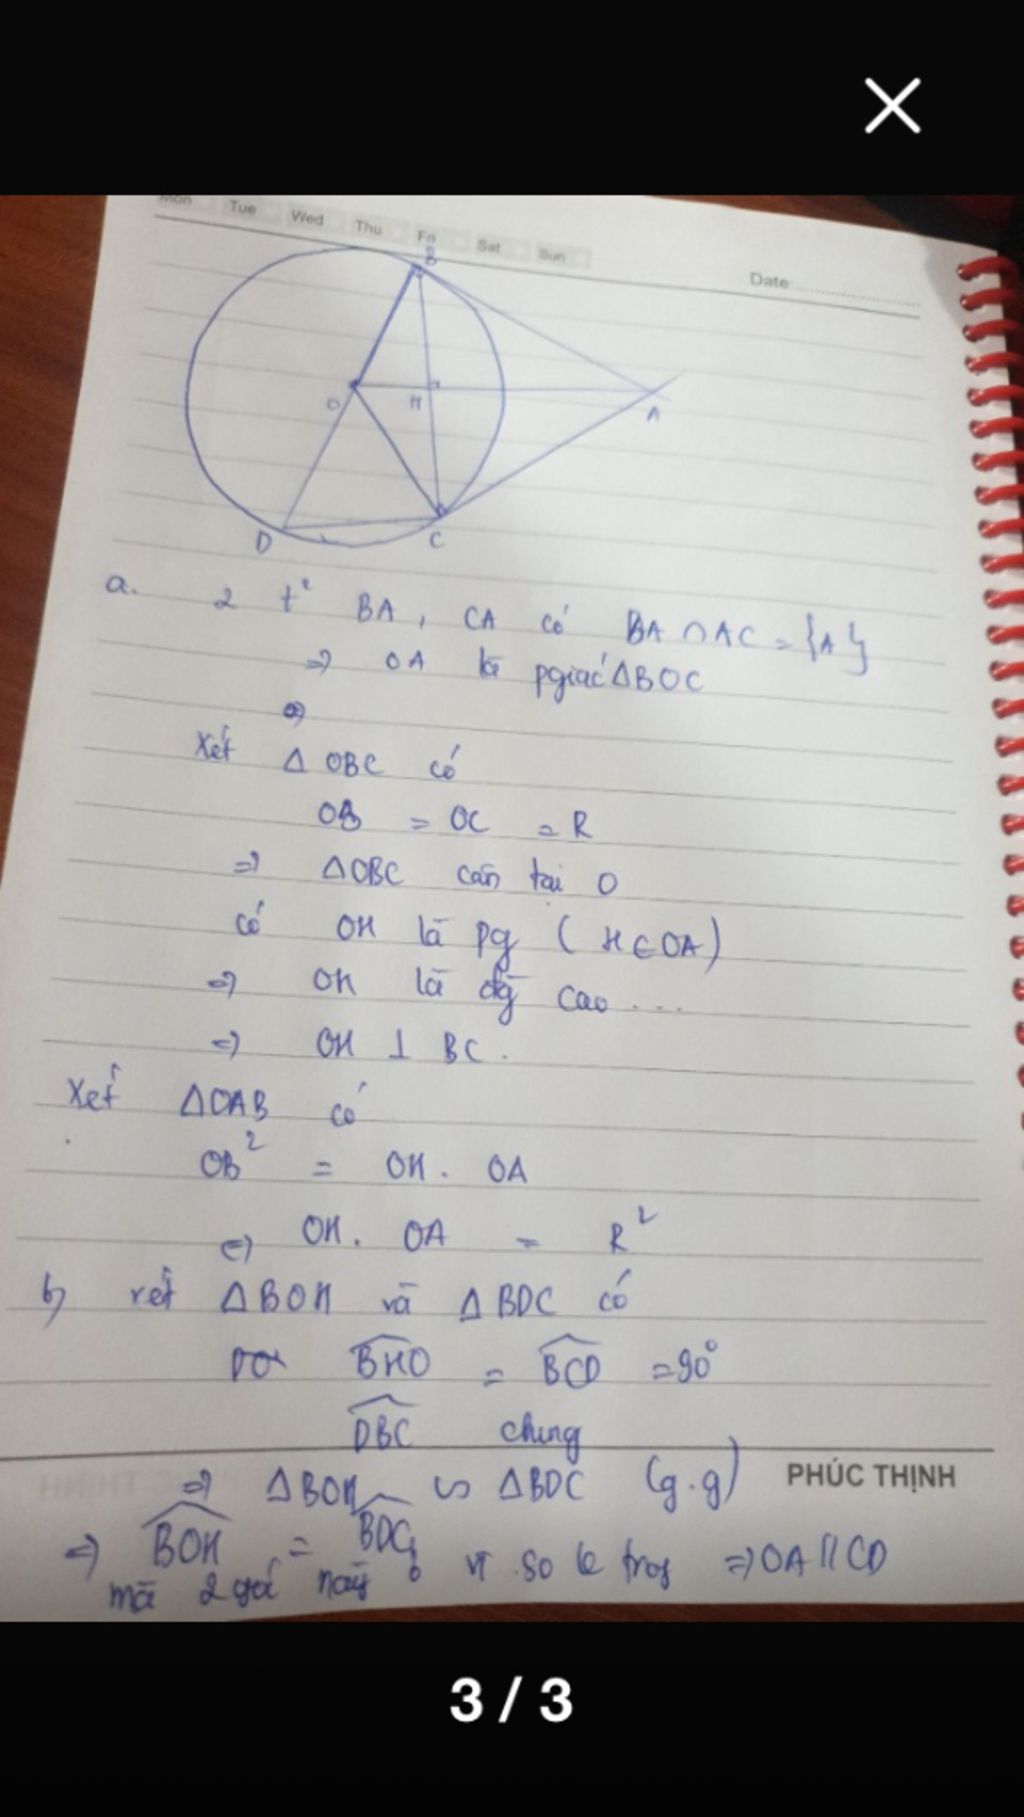 Mon Tue Wed Thu Fri Sat Sun
Date:
B
O H A
D C
a. 2 t² BA, CA có BA ∩ AC = {A}
=> OA là pgiác ΔBOC
=>
Xét ΔOBC có
OB = OC = R
=> ΔOBC cân tại O
có OH là pg (H∈OA)
=> OH là đg cao ...
=> OH ⊥ BC.
Xét ΔOAB có
OB² = OH. OA
<=> OH. OA = R²
b) xét ΔBOH và ΔBDC có
BHO = BCD = 90°
DBC chung
=> ΔBOH ∽ ΔBDC (g.g)
PHÚC THỊNH
=> BOH = BDC
mà 2 góc này ở vị so le trog => OA // CD
3 / 3